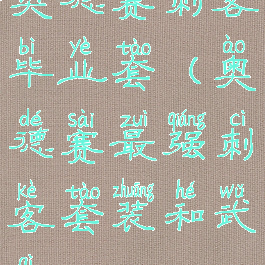 奥德赛刺客
bì yè tào ào
毕业套（奥
dé sài zuì qiáng cì
德赛最强刺
kè tào zhuāng hé wǔ
客套装和武
qì